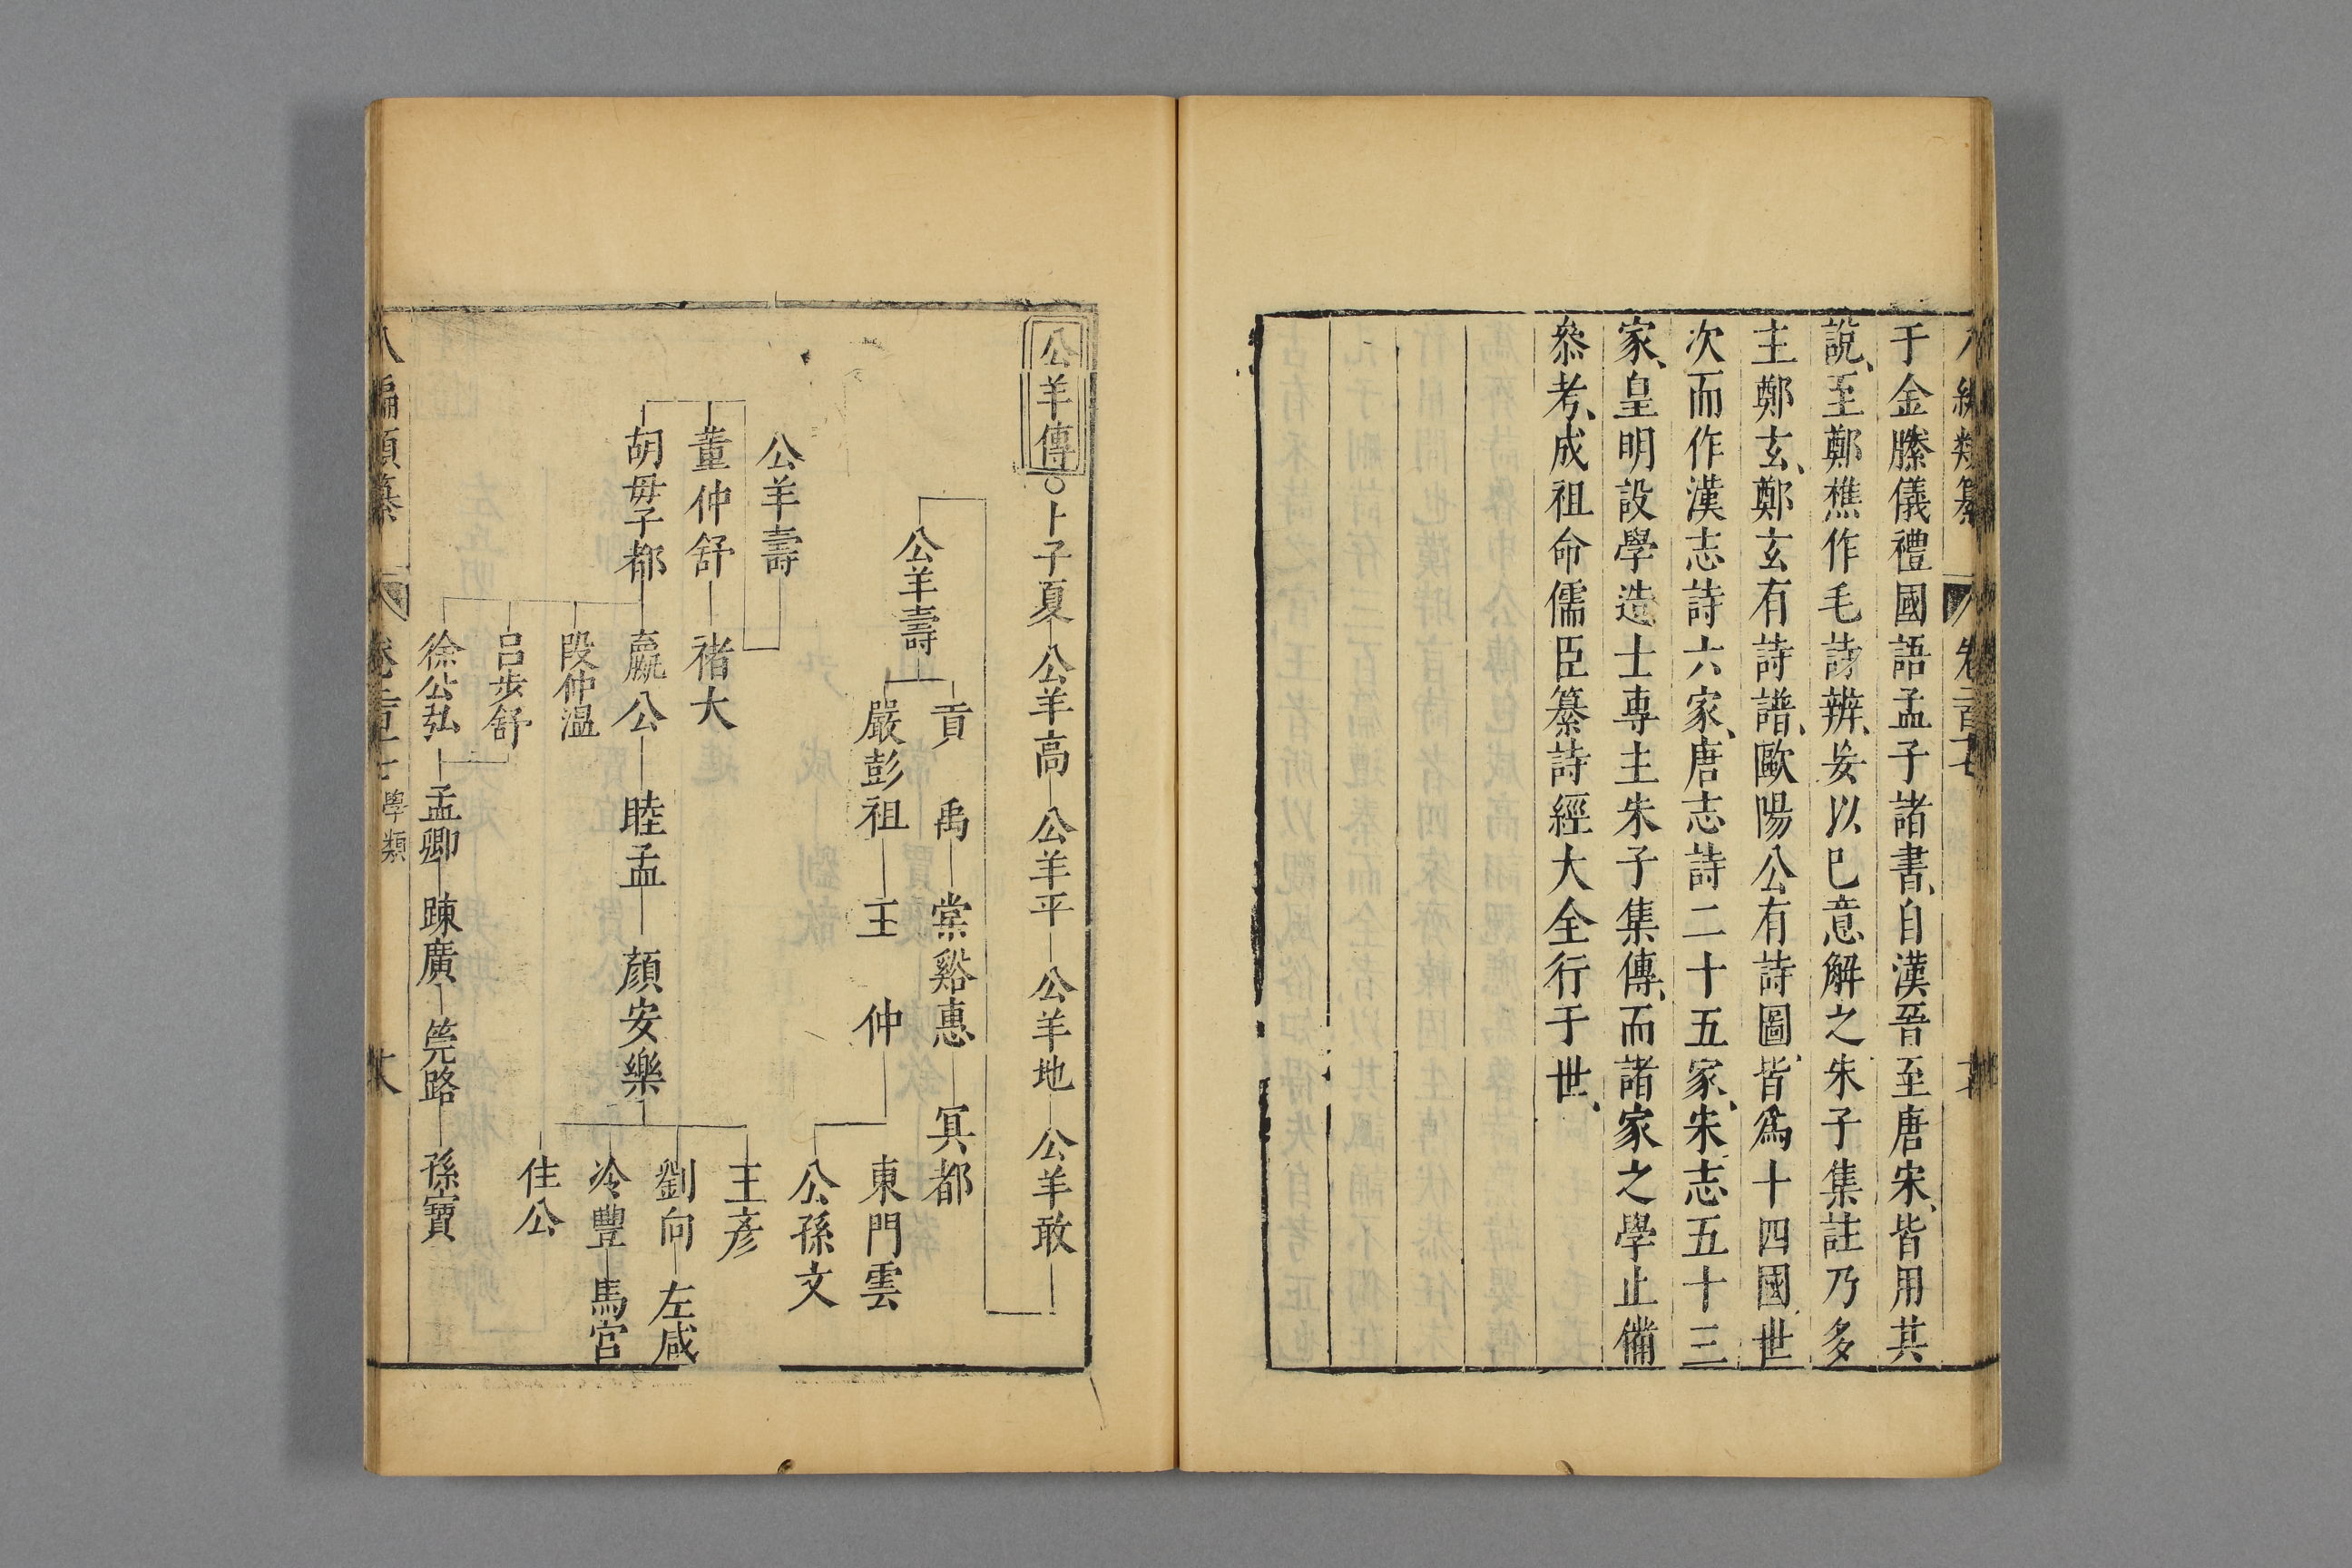 于金縢儀禮國語孟子諸書、自漢晉至唐宋、皆用其
說、至鄭樵作毛詩辨、妄以巳意解之朱子集註乃多
主鄭玄、鄭玄有詩譜、歐陽公有詩圖、皆爲十四國世
次而作漢志詩六家、唐志詩二十五家、宋志五十三
家、皇明設學造士專主朱子集傳、而諸家之學止備
叅考、成祖命儒臣纂詩經大全行于世、
公羊傳○卜子夏 公羊高 公羊平 公羊地 公羊敢
公羊壽
貢禹 棠谿惠 冥都
嚴彭祖 王仲
東門雲
公孫文
公羊壽
董仲舒 褚大
胡毋子都 嬴公 眭孟 顔安樂
王彥
劉向 左咸
冷豐 馬宮
任公
段仲溫
呂步舒
徐公弘 孟卿 踈廣 筦路 孫寶
學類